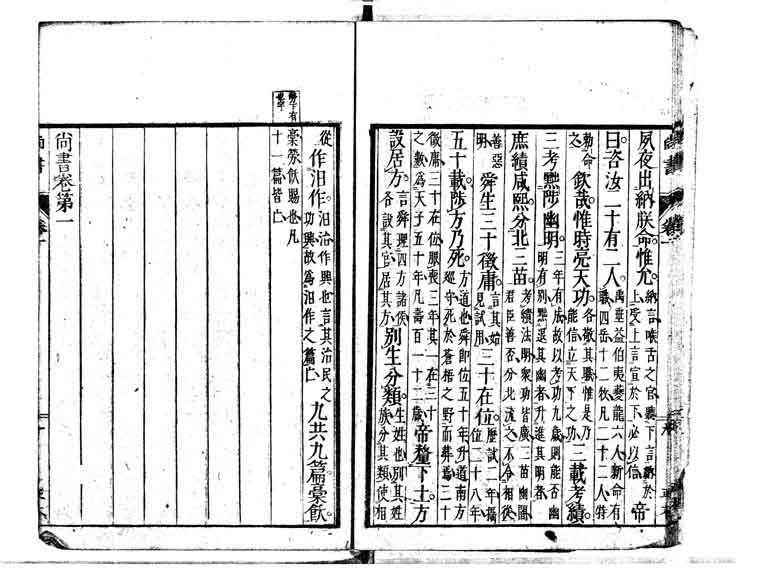 夙夜出納朕命惟允。納言喉舌之官聽下言納於上受上言宣於下必以信 帝
曰咨汝二十有二人。禹垂益伯夷夔龍六人新命有職四岳十二牧凡二十二人特
勑命之 欽哉惟時亮天功。各敬其職惟是乃能信立天下之功 三載考績。
三考黜陟幽明。三年有成故以考功九歲則能否幽明有別黜退其幽者升進其明者
庶績咸熙分北三苗。考績法明衆功皆廣三苗幽闇君臣善否分北流之不令相從
善惡明 舜生三十徵庸。言其始見試用 三十在位。歷試二年攝位二十八年
五十載陟方乃死。方道也舜即位五十年升道南方巡守死於蒼梧之野而葬焉三十
徵庸三十在位服喪三年其一在三十之數為天子五十年凡壽百一十二歲 帝釐下土方
設居方。言舜理四方諸侯各設其官居其方 別生分類。生姓也別其姓族分其類使相
從 作汩作。汩治作興也言其治民之功興故為汩作之篇亡 九共九篇槀飫。
槀勞飫賜也凡十一篇皆亡
尚書卷第一